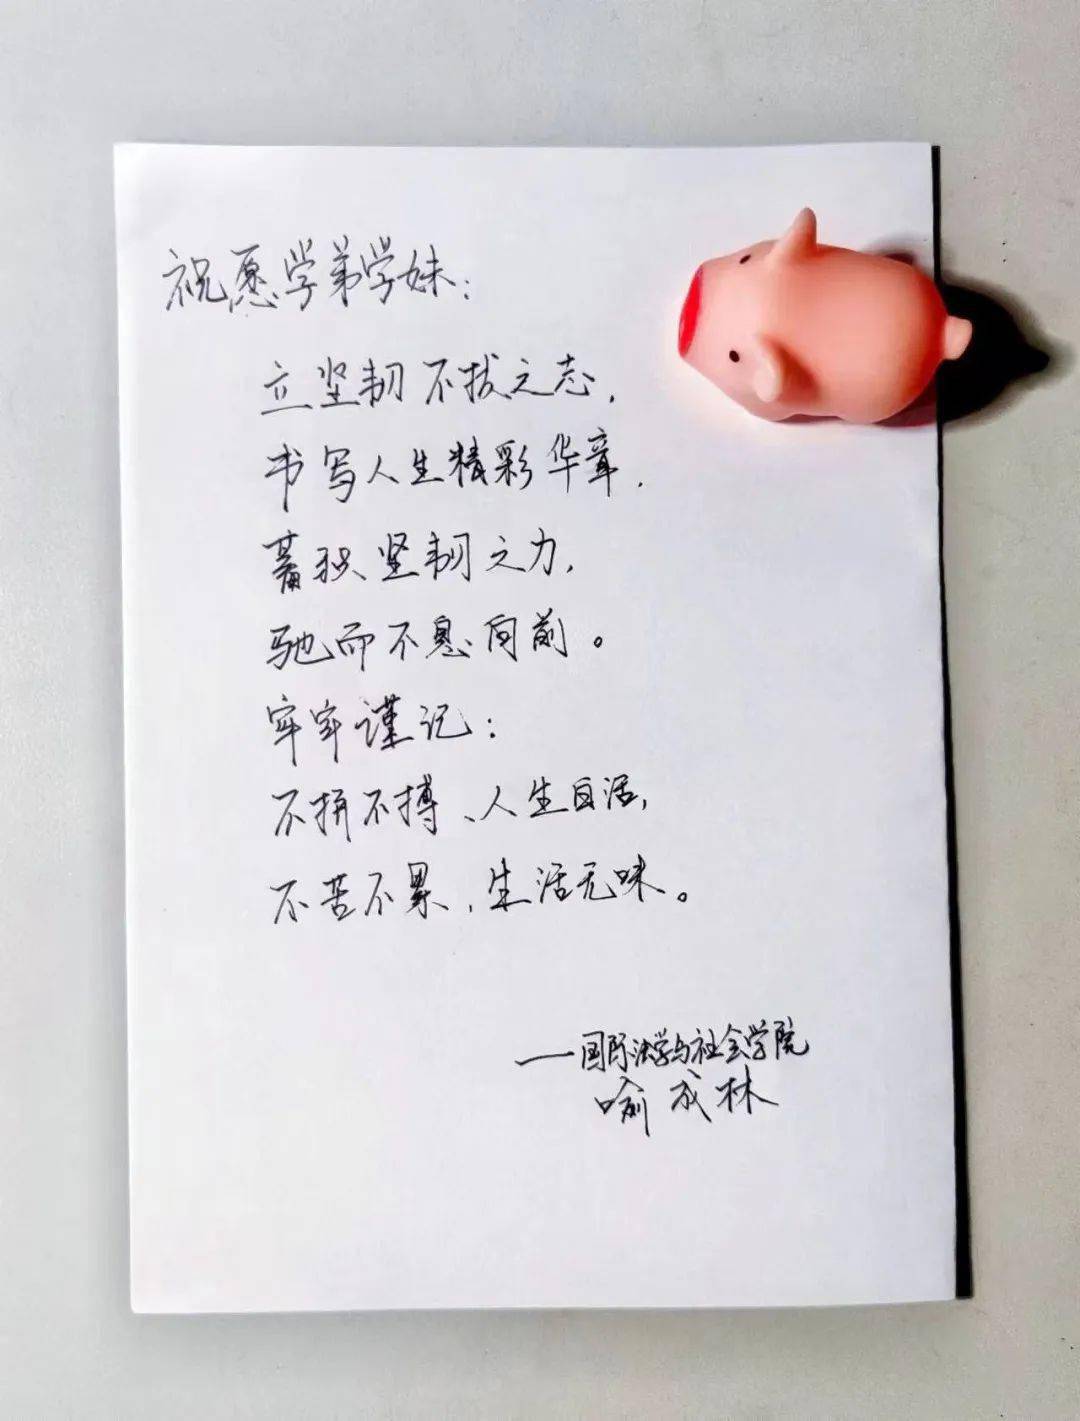 祝愿学弟学妹：
立坚韧不拔之志，
书写人生精彩华章．
蓄积坚韧之力，
驰而不息向前。
牢牢谨记：
不拼不搏、人生白活，
不苦不累，生活无味。
——国际法学与社会学院
喻成林